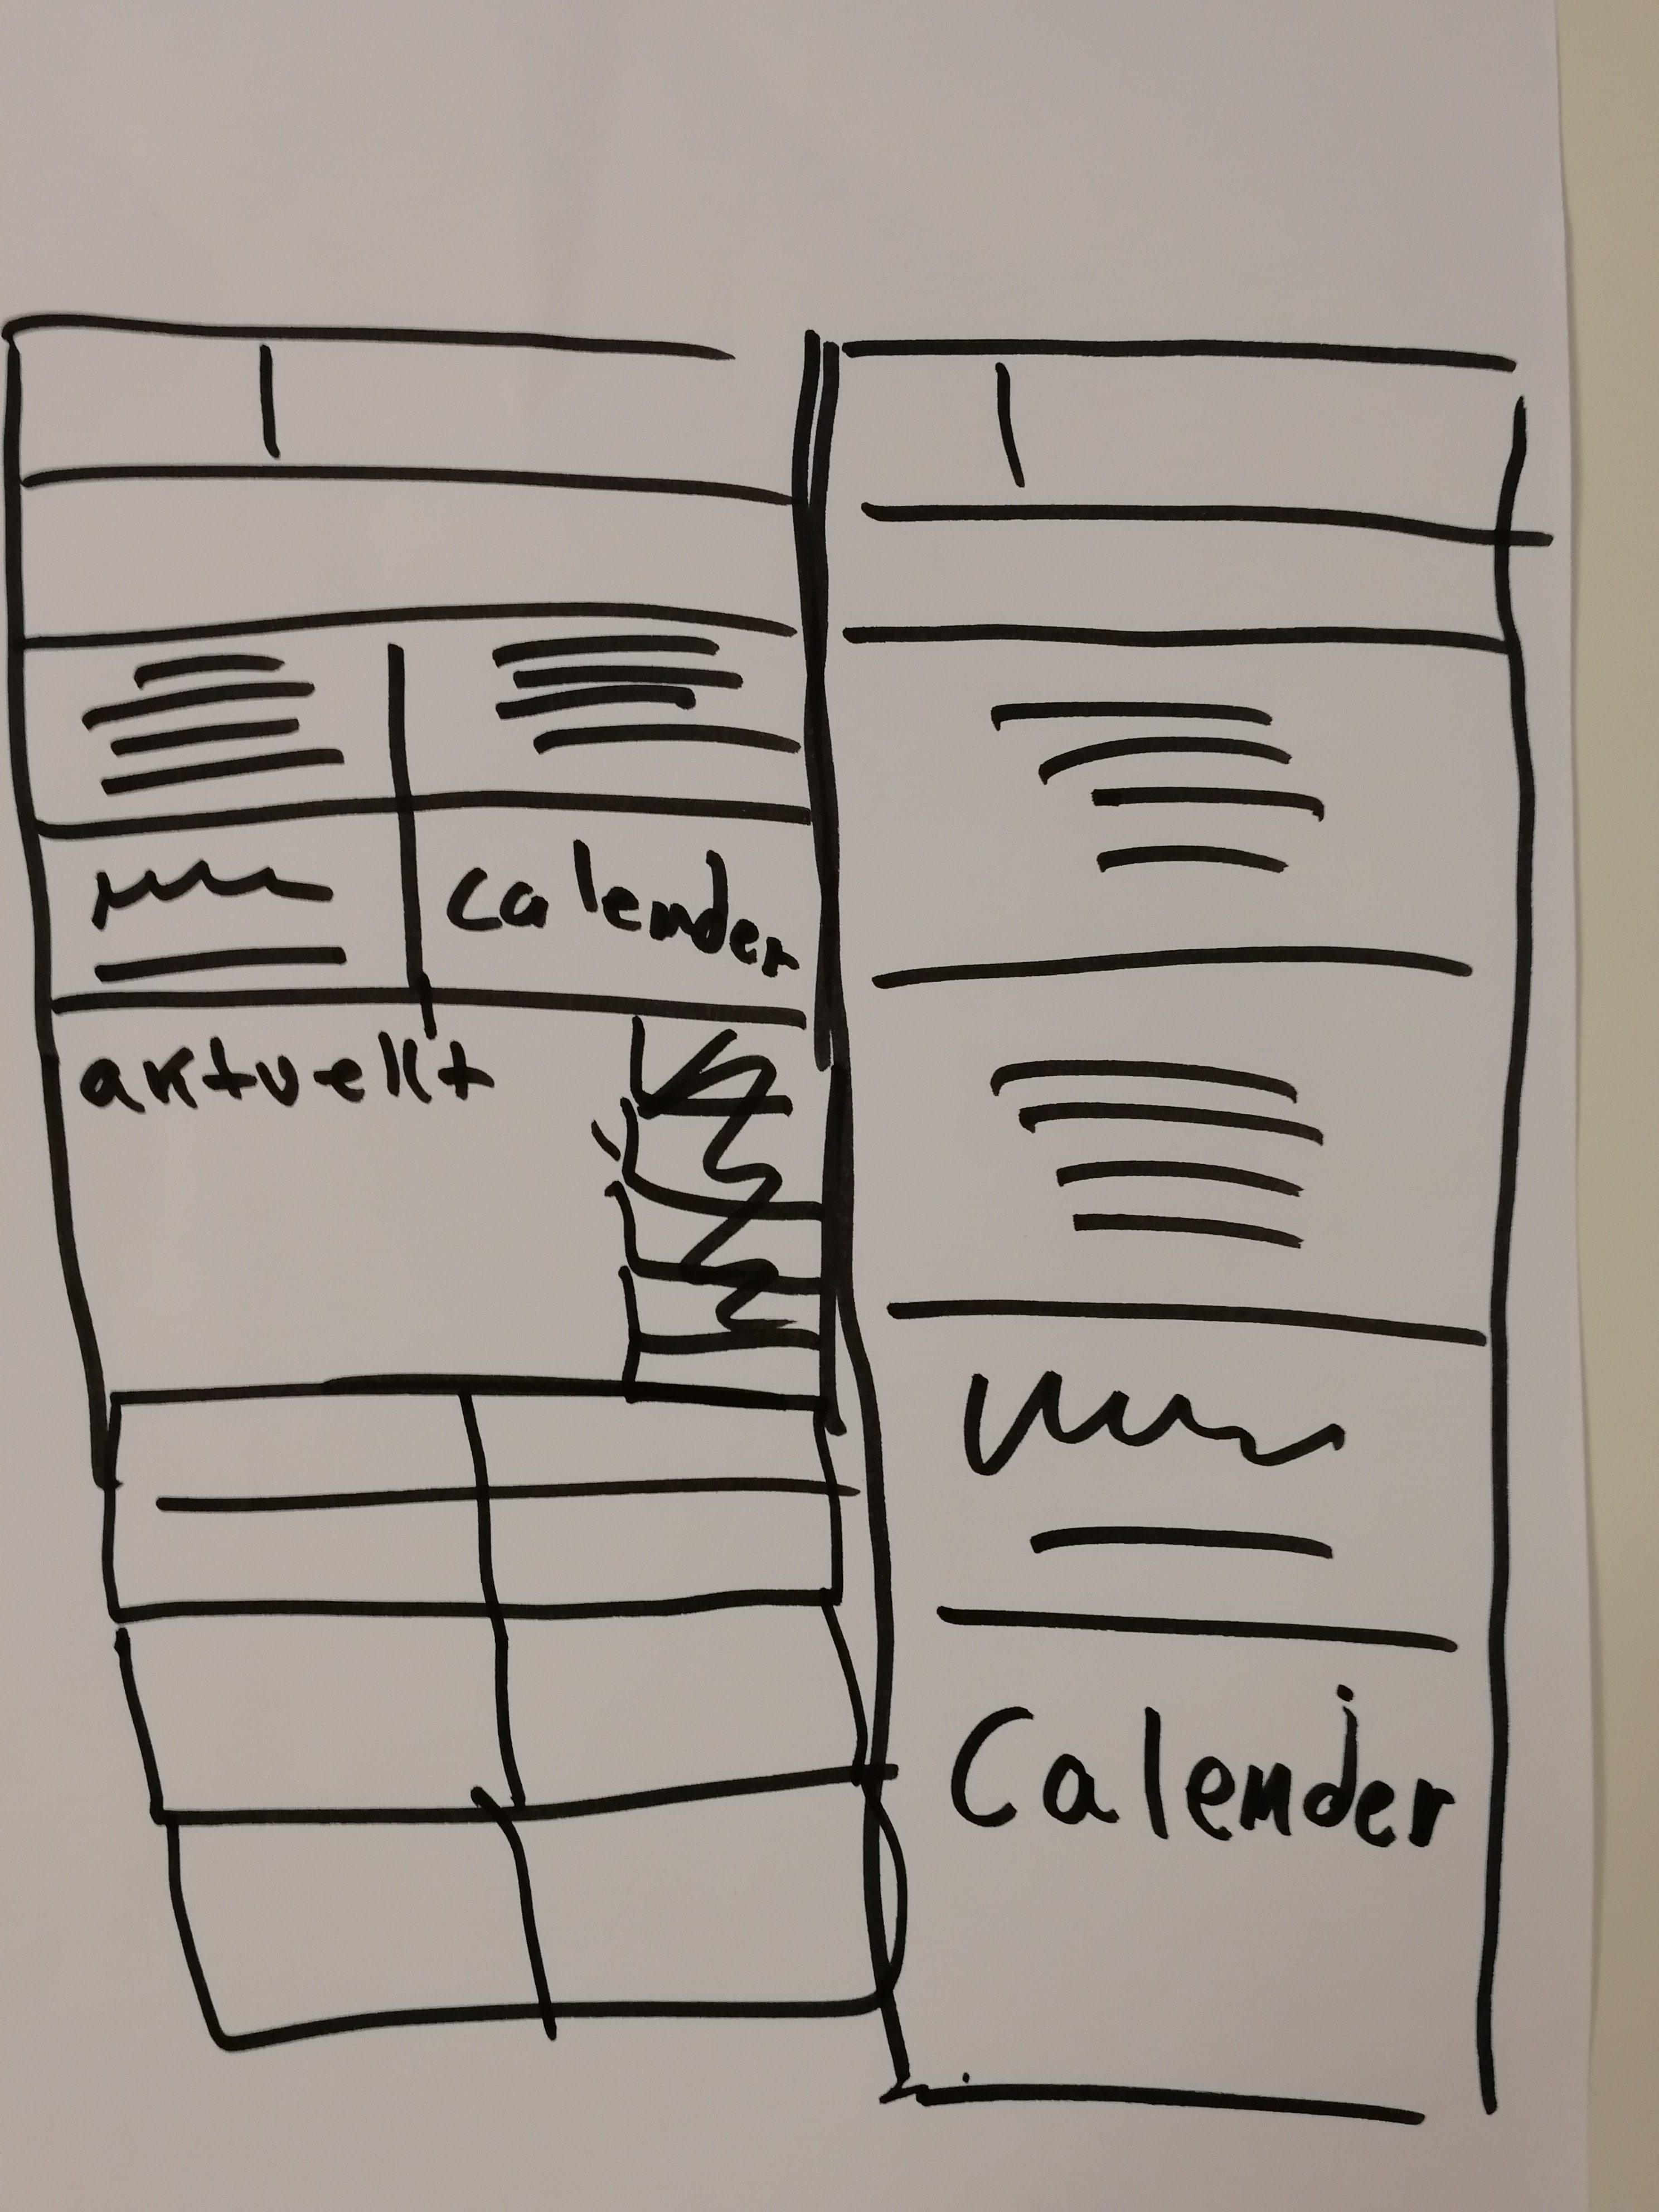 calender
aktuellt
Calender